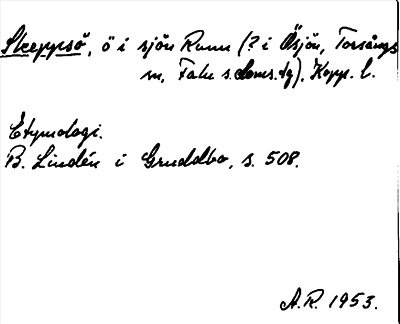 Skeppsö, ö i sjön Runn (? i Ösjön, Torsångs
sn, Falu s. doms. tg), Kopp. l.
Etymologi.
B. Lindén i Gruddbo, s. 508.
A.R. 1953.